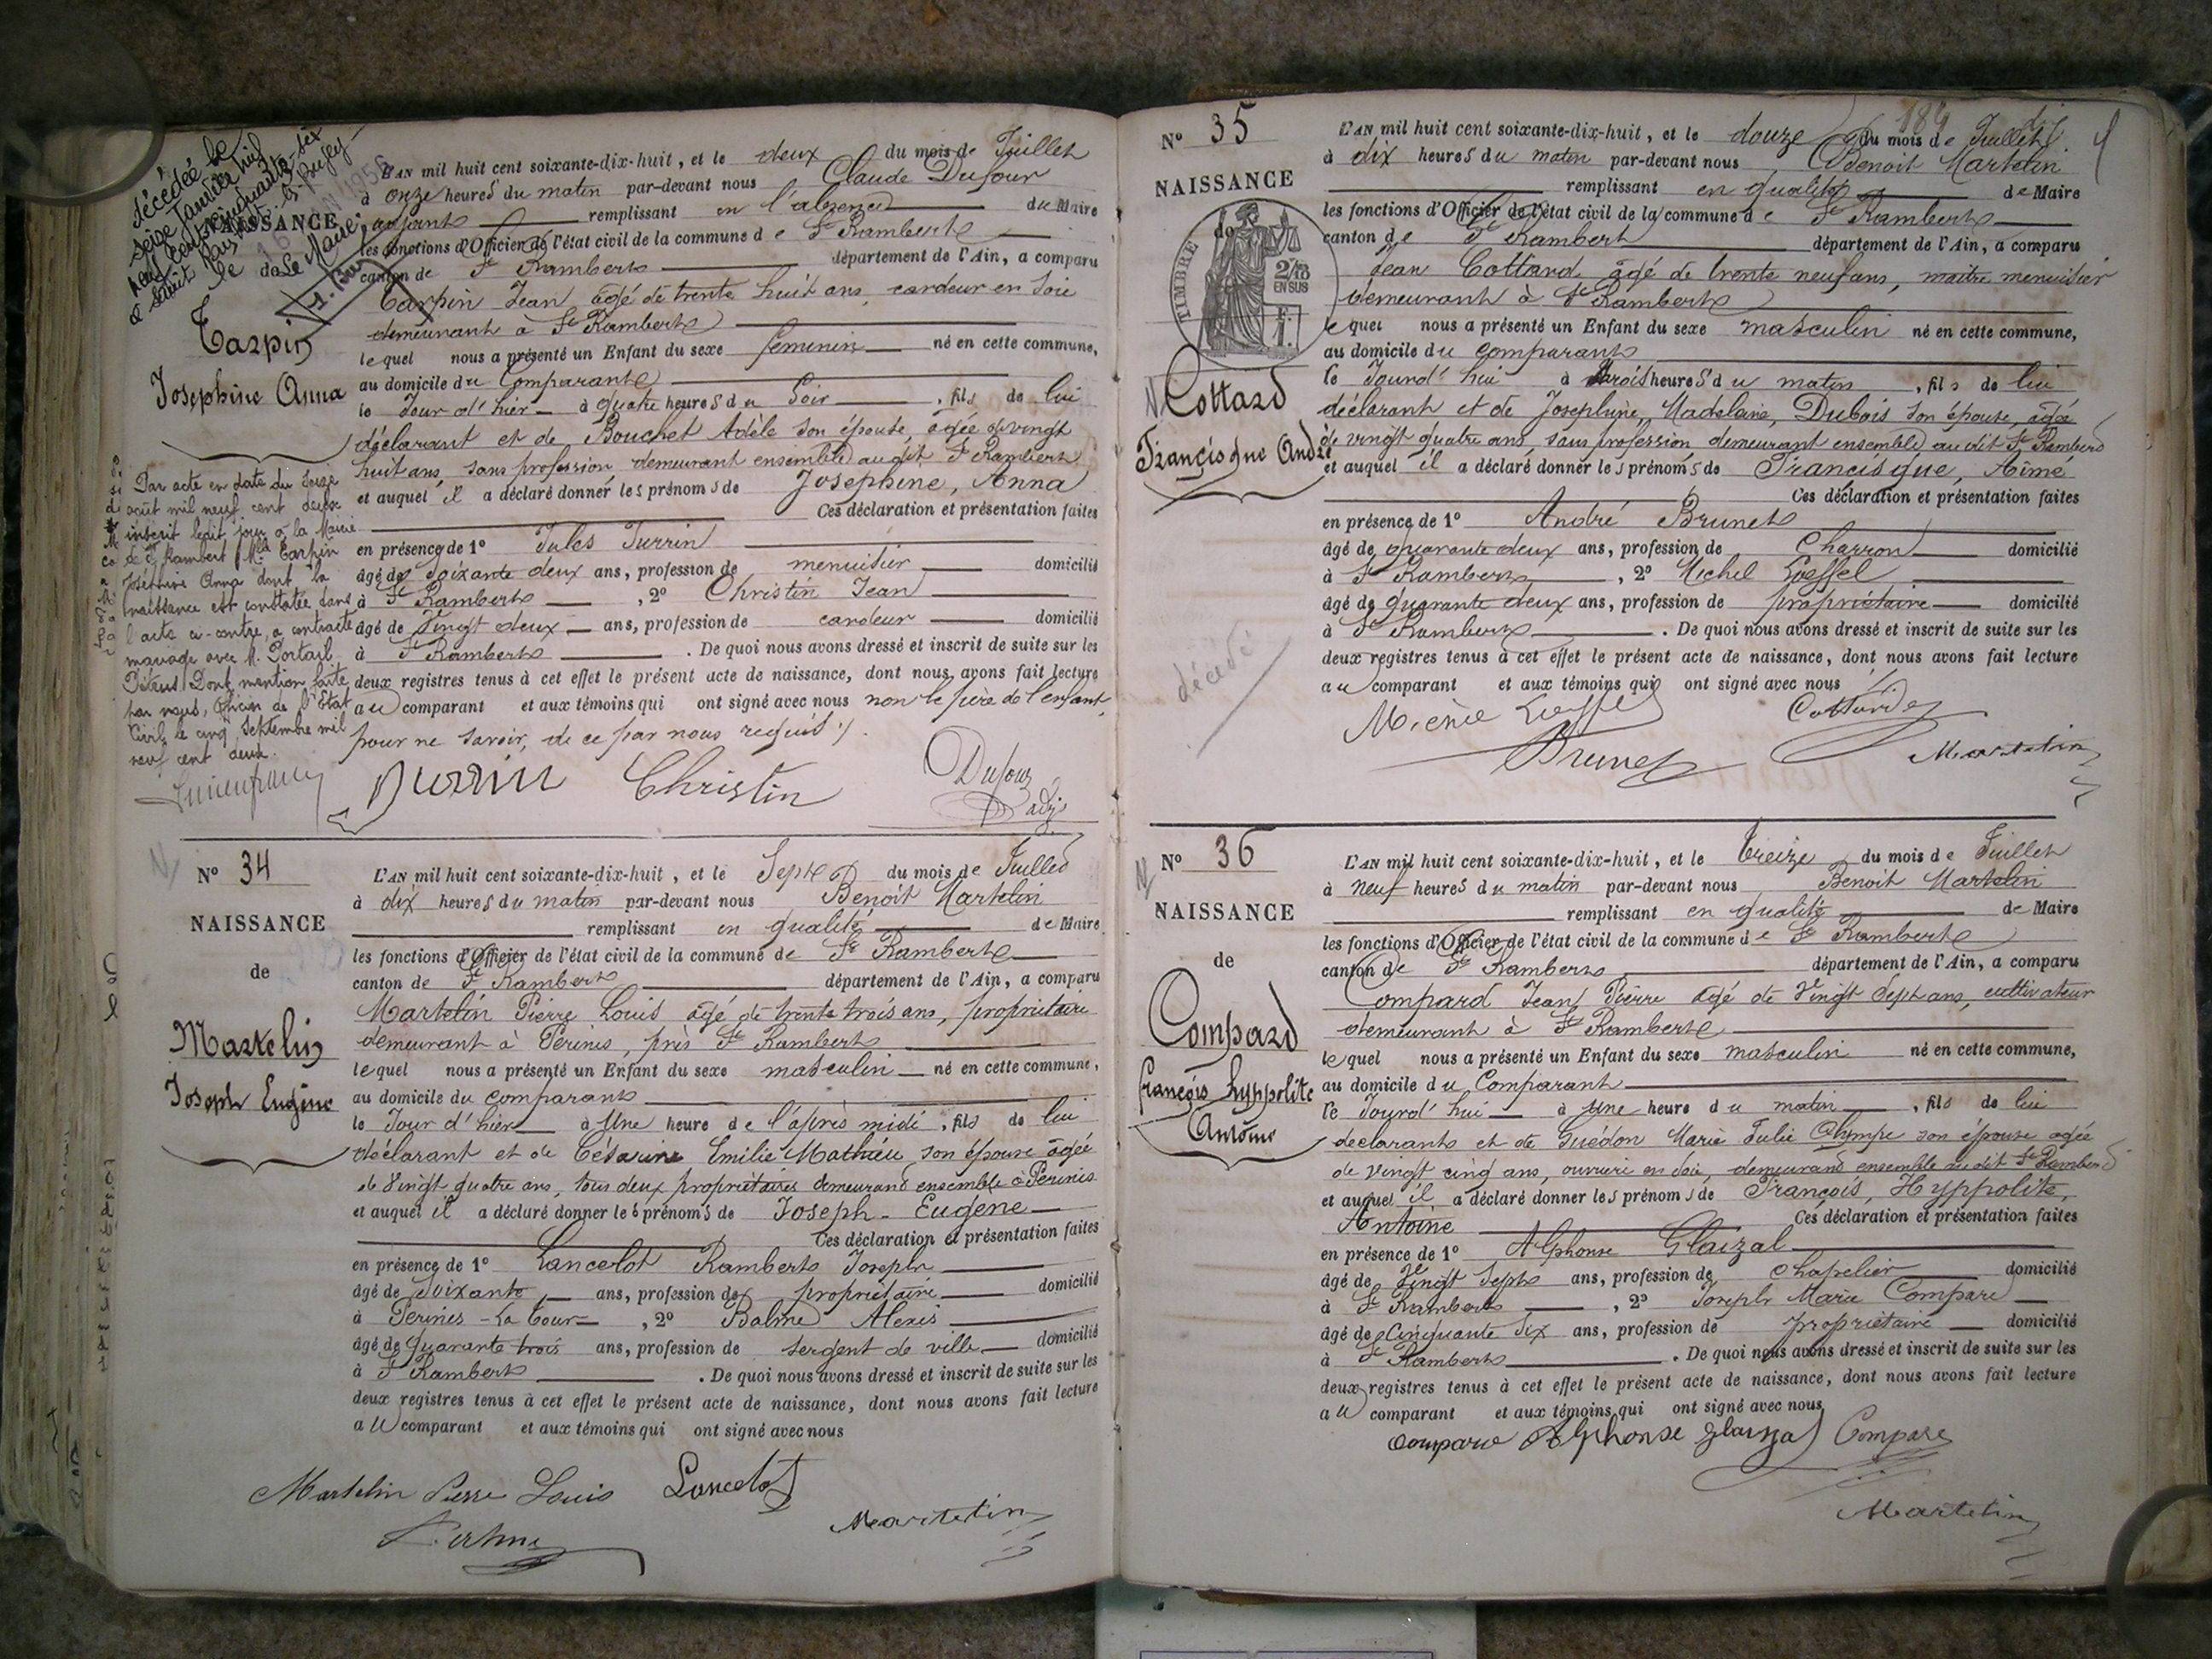 décédée le
seize Janvier mil
neuf cent cinquante-six
à Saint Rambert-en-Bugey
le
Le Maire
NAISSANCE
de
Tarpin
Josephine Anna
Par acte en date du seize
août mil neuf cent deux
inscrit ledit jour à la Mairie
de St Rambert Mlle Tarpin
Joséphine Anna dont la
naissance est constatée dans
l'acte ci-contre, a contracté
mariage avec M. Portail
Dont mention faite
par nous, Officier de l'Etat
Civil, le cinq Septembre mil
neuf cent deux.
L'AN mil huit cent soixante-dix-huit, et le deux du mois de Juillet
à onze heures du matin par-devant nous Claude Dufour
adjoint remplissant en l'absence du Maire
les fonctions d'Officier de l'état civil de la commune de St Rambert
canton de St Rambert département de l'Ain, a comparu
Tarpin Jean, âgé de trente huit ans, cardeur en soie
demeurant à St Rambert
lequel nous a présenté un Enfant du sexe féminin né en cette commune,
au domicile du Comparant
le Jour d'hier à quatre heures du Soir, fils de lui
déclarant et de Bouchet Adèle son épouse, âgée de vingt
huit ans, sans profession demeurant ensemble audit St Rambert
et auquel il a déclaré donner les prénoms de Joséphine, Anna
Ces déclaration et présentation faites
en présence de 1° Jules Jurrin
âgé de soixante deux ans, profession de menuisier domicilié
à St Rambert, 2° Christin Jean
âgé de Vingt deux ans, profession de cardeur domicilié
à St Rambert. De quoi nous avons dressé et inscrit de suite sur les
deux registres tenus à cet effet le présent acte de naissance, dont nous avons fait lecture
au comparant et aux témoins qui ont signé avec nous non le père de l'enfant,
pour ne savoir, de ce par nous requis
Christin
Dufour
adj
N° 34
NAISSANCE
de
Martelin
Joseph Eugène
L'AN mil huit cent soixante-dix-huit, et le Sept du mois de Juillet
à dix heures du matin par-devant nous Benoît Martelin
remplissant en qualité de Maire
les fonctions d'Officier de l'état civil de la commune de St Rambert
canton de St Rambert département de l'Ain, a comparu
Martelin Pierre Louis âgé de trente trois ans, propriétaire
demeurant à Périnis, près St Rambert
lequel nous a présenté un Enfant du sexe masculin né en cette commune,
au domicile du comparant
le Jour d'hier à Une heure de l'après midi, fils de lui
déclarant et de Césarine Emilie Mathieu son épouse âgée
de Vingt quatre ans, tous deux propriétaires demeurant ensemble à Périnis
et auquel il a déclaré donner les prénoms de Joseph-Eugène
Ces déclaration et présentation faites
en présence de 1° Lancelot Rambert Joseph
âgé de Soixante ans, profession de propriétaire domicilié
à Perines-La Tour, 2° Balme Alexis
âgé de quarante trois ans, profession de sergent de ville domicilié
à St Rambert. De quoi nous avons dressé et inscrit de suite sur les
deux registres tenus à cet effet le présent acte de naissance, dont nous avons fait lecture
au comparant et aux témoins qui ont signé avec nous
Martelin Pierre Louis Lancelot
Martelin
N° 35
NAISSANCE
de
TIMBRE
2/10
EN SUS
Cottard
Françisque André
décédé
L'AN mil huit cent soixante-dix-huit, et le douze du mois de Juillet
à dix heures du matin par-devant nous Benoit Martelin
remplissant en qualité de Maire
les fonctions d'Officier de l'état civil de la commune de St Rambert
canton de St Rambert département de l'Ain, a comparu
Jean Cottard âgé de trente neuf ans, maître menuisier
demeurant à St Rambert
lequel nous a présenté un Enfant du sexe masculin né en cette commune,
au domicile du comparant
le Jourd'hui à trois heures du matin, fils de lui
déclarant et de Josephine, Madelaine, Dubois son épouse, agée
de vingt quatre ans, sans profession demeurant ensemble au dit St Rambert
et auquel il a déclaré donner les prénoms de Francisque, Aimé
Ces déclaration et présentation faites
en présence de 1° André Brunet
âgé de quarante deux ans, profession de Charron domicilié
à St Rambert, 2° Michel Loeffel
âgé de quarante deux ans, profession de propriétaire domicilié
à St Rambert. De quoi nous avons dressé et inscrit de suite sur les
deux registres tenus à cet effet le présent acte de naissance, dont nous avons fait lecture
au comparant et aux témoins qui ont signé avec nous
Cottard
Brunet
Martelin
N° 36
NAISSANCE
de
Compard
François hyppolite
Antoine
L'AN mil huit cent soixante-dix-huit, et le treize du mois de Juillet
à neuf heures du matin par-devant nous Benoit Martelin
remplissant en qualité de Maire
les fonctions d'Officier de l'état civil de la commune de St Rambert
canton de St Rambert département de l'Ain, a comparu
Compard Jean Pierre agé de Vingt Sept ans, cultivateur
demeurant à St Rambert
lequel nous a présenté un Enfant du sexe masculin né en cette commune,
au domicile du Comparant
le Jourd'hui à Une heure du matin, fils de lui
declarant et de Guédon Marie Julie Olympe son épouse agée
de vingt cinq ans, ouvrière en soie, demeurant ensemble au dit St Rambert
et auquel il a déclaré donner les prénoms de François, Hyppolite,
Antoine Ces déclaration et présentation faites
en présence de 1° Alphonse Glaizal
âgé de Vingt Sept ans, profession de Chapelier domicilié
à St Rambert, 2° Joseph Marie Compard
âgé de Cinquante Six ans, profession de propriétaire domicilié
à St Rambert. De quoi nous avons dressé et inscrit de suite sur les
deux registres tenus à cet effet le présent acte de naissance, dont nous avons fait lecture
au comparant et aux témoins qui ont signé avec nous
Alphonse Glaizal
Martelin